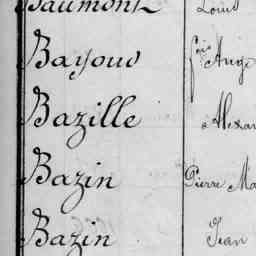 Beaumont Louis
Bayoud
Bazille Alexan
Bazin Pierre Ma
Bazin Jean